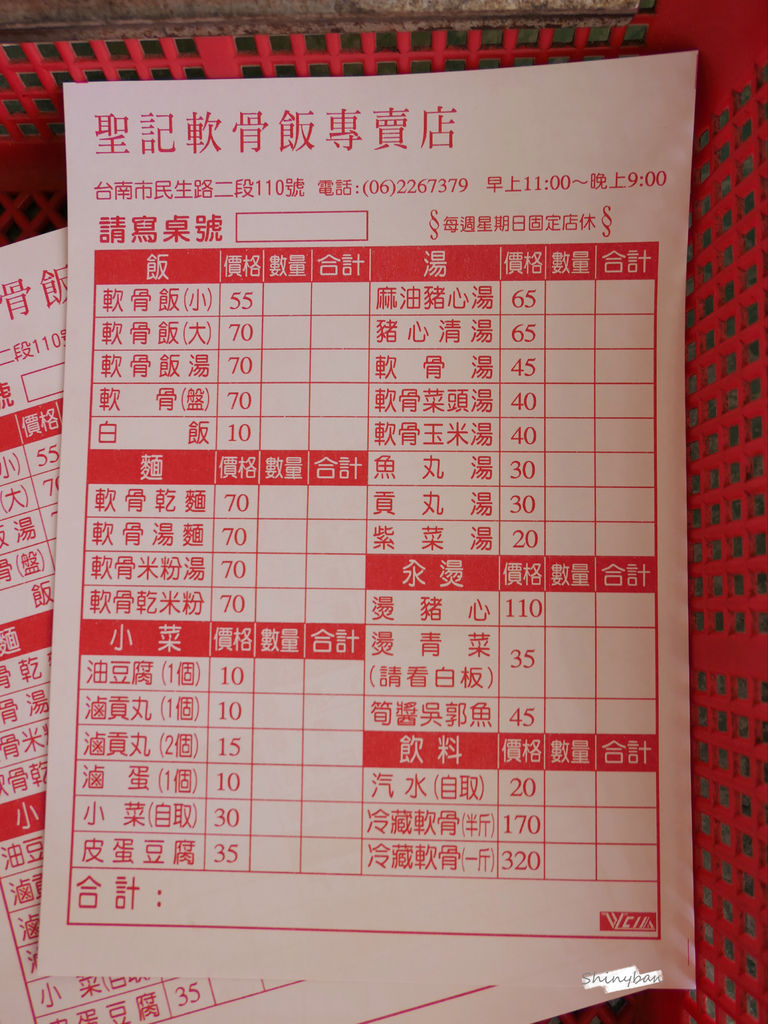 聖記軟骨飯專賣店
台南市民生路二段110號 電話:(06)2267379 早上11:00～晚上9:00
請寫桌號 §每週星期日固定店休§
飯 價格 數量 合計
軟骨飯(小) 55
軟骨飯(大) 70
軟骨飯湯 70
軟骨(盤) 70
白飯 10
麵 價格 數量 合計
軟骨乾麵 70
軟骨湯麵 70
軟骨米粉湯 70
軟骨乾米粉 70
小菜 價格 數量 合計
油豆腐(1個) 10
滷貢丸(1個) 10
滷貢丸(2個) 15
滷蛋(1個) 10
小菜(自取) 30
皮蛋豆腐 35
湯 價格 數量 合計
麻油豬心湯 65
豬心清湯 65
軟骨湯 45
軟骨菜頭湯 40
軟骨玉米湯 40
魚丸湯 30
貢丸湯 30
紫菜湯 20
汆燙 價格 數量 合計
燙豬心 110
燙青菜
(請看白板) 35
筍醬吳郭魚 45
飲料 價格 數量 合計
汽水(自取) 20
冷藏軟骨(半斤) 170
冷藏軟骨(一斤) 320
合計：
Shinyban
骨飯
二段110號
號
價格
小) 55
(大)
飯湯
骨(盤)
飯
麵
骨乾
骨湯
骨米
軟骨乾
小
油豆
滷貢
滷
小菜(自取)
皮蛋豆腐 35